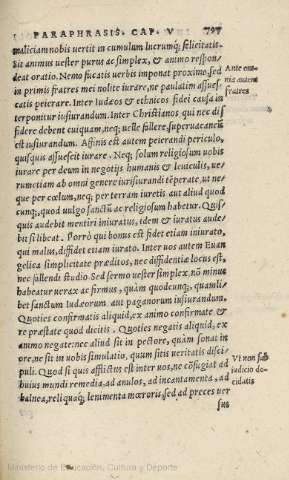 PARAPHRASIS. CAP. V 797
maliciam nobis vertit in cumulum lucrumq; felicitatis.
Sit animus uester purus ac simplex, & animo respon-
deat oratio. Nemo fucatis uerbis imponat proximo, sed
in primis fratres mei nolite iurare, ne paulatim assues-
catis peierare. Inter Iudæos & ethnicos fidei causa in
terponitur iusiurandum. Inter Christianos qui nec dif
fidere debent cuiquam, neq; uelle fallere, superuacaneũ
est iusiurandum. Affinis est autem peierandi periculo,
quisquis assuescit iurare. Neq; solum religiosum uobis
iurare per deum in negotijs humanis & leuiculis, ue-
rumetiam ab omni genere iurisiurandi tẽperate, ut ne-
que per cœlum, neq; per terram iuretis aut aliud quod
cunq;, quod uulgo sanctũ ac religiosum habetur. Quis-
quis audebit mentiri iniuratus, idem & iuratus aude-
bit si libeat. Porrò qui bonus est fidet etiam iniurato,
qui malus, diffidet etiam iurato. Inter uos autem Euan
gelica simplicitate præditos, nec diffidentiæ locus est,
nec fallendi studio Sed sermo uester simplex nõ minus
habeatur uerax ac firmus, quàm quodcunq;, quamli-
bet sanctum Iudæorum aut paganorum iusiurandum.
Quoties confirmatis aliquid, ex animo confirmate &
re præstate quod dicitis. Quoties negatis aliquid, ex
animo negate: nec aliud sit in pectore, quàm sonat in
ore, ne sit in uobis simulatio, quum sitis veritatis disci-
puli. Quod si quis afflictus est inter uos, ne cõfugiat ad
huius mundi remedia, ad anulos, ad incantamenta, ad
balnea, reliquaq; lenimenta mœroris, sed ad preces ver
sus
Ante om-
nia autem
fratres
Vt non sub
iudicio de-
cidatis
Ministerio de Educación, Cultura y Deporte